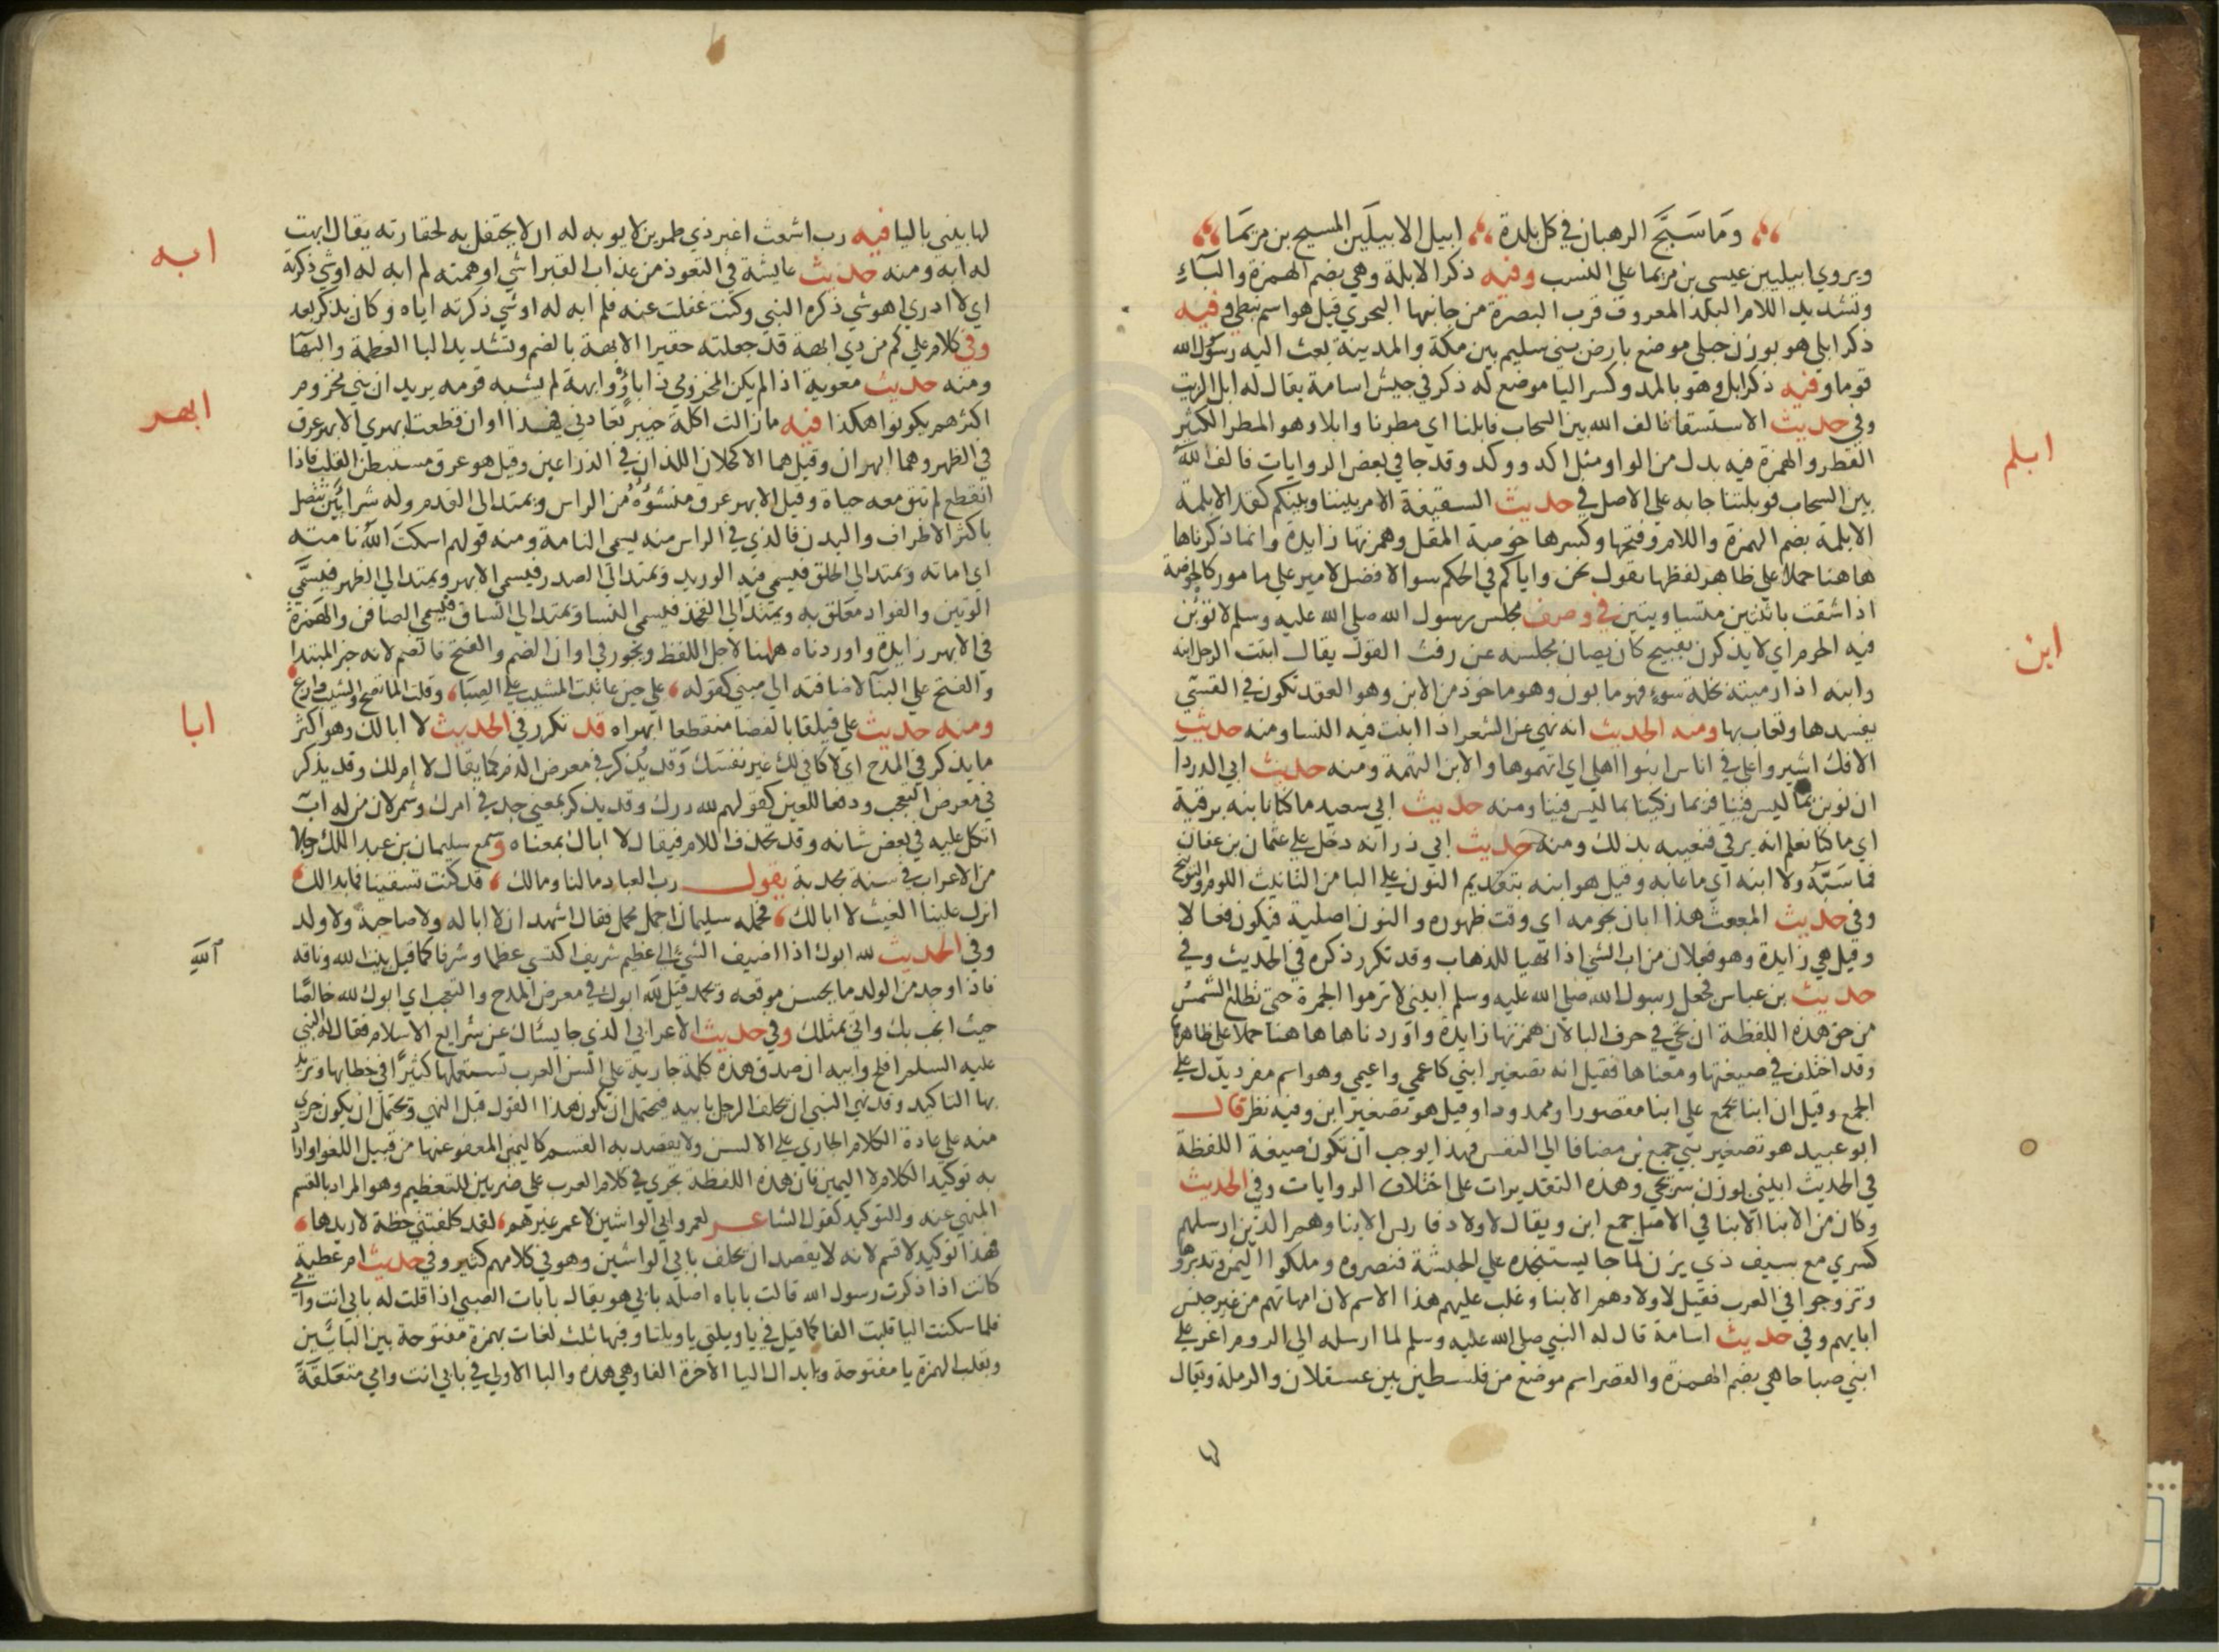 وَمَا سَبَّحَ الرهبان في كل بلدة ابيل الابيلَين المسيح بن مريمَا
ويروي ابيليين عيسي بن مريما علي النسب وفيه ذكر الابلة وهي بضم الهمزة والبآءِ
وتشديد اللام البلد المعروف قرب البصرة من جانبها البحري قيل هو اسم نبطي وفيه
ذكر ابلي هو بوزن حبلي موضع بارض بني سليم بين مكة والمدينة بعث اليه رسول الله
قوما وفيه ذكر ابل وهو بالمد وكسر البا موضع له ذكر في جيش اسامة يقال له ابل الزيت
وفي حديث الاستسقا فالف الله بين السحاب فابلنا اي مطرنا وابلا وهو المطر الكثير
القطر والهمزة فيه بدل من الواو مثل اكد ووكد وقد جا في بعض الروايات فالف الله
بين السحاب فوبلتنا جا به علي الاصل في حديث السقيفة الامر بيننا وبينكم كقد الابلمة
ابلم
الابلمة بضم الهمزة واللام وفتحها وكسرها خوصة المقل وهمزتها زايدة وانما ذكرناها
هاهنا حملا علي ظاهر لفظها يقول نحن واياكم في الحكم سوا لا فضل لامير علي مامور كالخوصة
اذا شقت باثنتين متساويتين في وصف مجلس رسول الله صلي الله عليه وسلم لا تؤبن
فيه الحرم اي لا يذكرن بقبيح كان يصان مجلسه عن رفث القول يقال ابنت الرجل ابنه
ابن
وابنه اذا رميته بخلة سوءٍ فهو مابون وهو ماخوذ من الابن وهو العقد تكون في القسي
يفسدها وتعاب بها ومنه الحديث انه نهي عن الشعر اذا ابنت فيه النسا ومنه حديث
الافك اشيروا علي في اناس ابنوا اهلي اي اتهموها والابن التهمة ومنه حديث ابي الدردآ
ان نوبن بما ليس فينا فربما زكينا بما ليس فينا ومنه حديث ابي سعيد ما كنا نابنه برقية
اي ما كنا نعلم انه يرقي فنعيبه بذلك ومنه حديث ابي ذر انه دخل علي عثمان بن عفان
فما سَبَّه ولا ابنه اي ما عابه وقيل هو ابنه بتقديم النون علي البا من التانيث اللوم والتوبيخ
وفي حديث المبعث هذا ابان نجومه اي وقت ظهوره والنون اصلية فيكون فعالا
وقيل هي زايدة وهو فعلان من اب الشي اذا تهيا للذهاب وقد تكرر ذكره في الحديث وفي
حديث بن عباس فجعل رسول الله صلي الله عليه وسلم ابيني لا ترموا الجمرة حتي تطلع الشمس
من حق هذه اللفظة ان تجي في حرف البا لان همزتها زايدة واوردناها هاهنا حملا علي ظاهرها
وقد اختلف في صيغتها ومعناها فقيل انه تصغير ابني كاعمي واعيمي وهو اسم مفرد يدل علي
الجمع وقيل ان ابنا يجمع علي ابنا مقصورا وممدودا وقيل هو تصغير ابن وفيه نظر قال
ابو عبيد هو تصغير بني جمع بن مضافا الي النفس فهذا يوجب ان تكون صيغة اللفظة
في الحديث ابيني بوزن سريجي وهذه التقديرات علي اختلاف الروايات وفي الحديث
وكان من الابنا الابنا في الاصل جمع ابن ويقال لاولاد فارس الابنا وهم الذين ارسلهم
كسري مع سيف ذي يزن لما جا يستنجده علي الحبشة فنصروه وملكوا اليمن وتدبروها
وتزوجوا في العرب فقيل لاولادهم الابنا وغلب عليهم هذا الاسم لان امهاتهم من غير جنس
ابايهم وفي حديث اسامة قال له النبي صلي الله عليه وسلم لما ارسله الي الروم اغر علي
ابني صباحا هي بضم الهمزة والقصر اسم موضع من فلسطين بين عسقلان والرملة ويقال
لها
لها يبني باليا فيه رب اشعث اغبر ذي طمرين لا يوبه له اي لا يحتفل به لحقارته يقال ابهت
ابه
له ابه ومنه حديث عايشة في التعوذ من عذاب القبر اشي اوهمته لم ابه له او شي ذكرته
اي لا ادري اهو شي ذكره النبي وكنت غفلت عنه فلم ابه له او شي ذكرته اياه وكان يذكر بعد
وفي كلام علي كم من ذي ابهة قد جعلته حقيرا الابهة بالضم وتشديد البا العظمة والبهآ
ومنه حديث معوية اذا لم يكن المخزومي ذا باوٍ وابهة لم يشبه قومه يريد ان بني مخزوم
اكثرهم يكونوا هكذا فيه ما زالت اكلة خيبر تعادني فهذا اوان قطعت ابهري الابهر عرق
ابهر
في الظهر وهما ابهران وقيل هما الاكحلان اللذان في الذراعين وقيل هو عرق مستبطن القلب فاذا
انقطع لم تبق معه حياة وقيل الابهر عرق منشؤُهُ من الراس ويمتد الي القدم وله شرايين تتصل
باكثر الاطراف والبدن فالذي في الراس منه يسمي النامة ومنه قولهم اسكتَ اللَّهُ نامته
اي اماته ويمتد الي الحلق فيسمي فيه الوريد ويمتد الي الصدر فيسمي الابهر ويمتد الي الظهر فيسمَّي
الوتين والفواد معلق به ويمتد الي الفخذ فيسمي النسا ويمتد الي الساق فيسمي الصافن والهمزة
في الابهر زايدة واوردناه ههنا لاجل اللفظ ويجوز في اوان الضم والفتح فالضم لانه خبر المبتدا
والفتح علي البنآ لاضافته الي مبني كقوله علي حين عاتبت المشيب علي الصِبَا وقلت الما تصح والشيب وازع
ومنه حديث علي فيلقا بالفضا منقطعا ابهراه قد تكرر في الحديث لا ابا لك وهو اكثر
ابا
ما يذكر في المدح اي لا كافي لك غير نفسك وقد يذكر في معرض الذم كما يقال لا ام لك وقد يذكر
في معرض التعجب ودفعا للعين كقولهم لله درك وقد يذكر بمعني جد في امرك وشمر لان من له اب
اتكل عليه في بعض شانه وقد تحذف اللام فيقال لا اباك بمعناه وسمع سليمان بن عبد الملك رجلا
من الاعراب في سنة مجدبة يقول رب العباد ما لنا وما لك قد كنت تسقينا فما بدا لك
انزل علينا الغيث لا ابا لك فحمله سليمان احمل محمل فقال اشهد ان لا ابا له ولا صاحبة ولا ولد
وفي الحديث لله ابوك اذا اضيف الشي الي عظيم شريف اكتسي عظما وشرفا كما قيل بيت الله وناقة
اللَّهِ
فاذا وجد من الولد ما يحسن موقعه ويحمد قيل للَّه ابوك في معرض المدح والتعجب اي ابوك لله خالصًا
حيث انجب بك واتي بمثلك وفي حديث الاعرابي الذي جا يسئال عن شرايع الاسلام فقال له النبي
عليه السلم افلح وابيه ان صدق هذه كلمة جارية علي السن العرب تستعملها كثيرًا في خطابها وتريد
بها التاكيد وقد نهي النبي ان يحلف الرجل بابيه فيحتمل ان يكون هذا القول قبل النهي ويحتمل ان يكون جري
منه علي عادة الكلام الجاري علي الالسن ولا يقصد به القسم كاليمين المعفو عنها من قبيل اللغو او اراد
به توكيد الكلام لا اليمين فان هذه اللفظة تجري في كلام العرب علي ضربين للتعظيم وهو المراد بالقسم
المنهي عنه والتوكيد كقول الشاعر لعمرو ابي الواشين لا عمر غيرهم لقد كلفتني خطة لا اريدها
فهذا توكيد لا قسم لانه لا يقصد ان يحلف بابي الواشين وهو في كلامهم كثير وفي حديث ام عطية
كانت اذا ذكرت رسول الله قالت باباه اصله بابي هو يقال بابات الصبي اذا قلت له بابي انت وامي
فلما سكنت اليا قلبت الفا كما قيل في يا ويلتي يا ويلتا وفيها ثلث لغات بهمزة مفتوحة بين البائين
وبقلب الهمزة يا مفتوحة وبابدال اليا الاخرة الفا وهي هذه والبا الاولي في بابي انت وامي متعَلقَةً